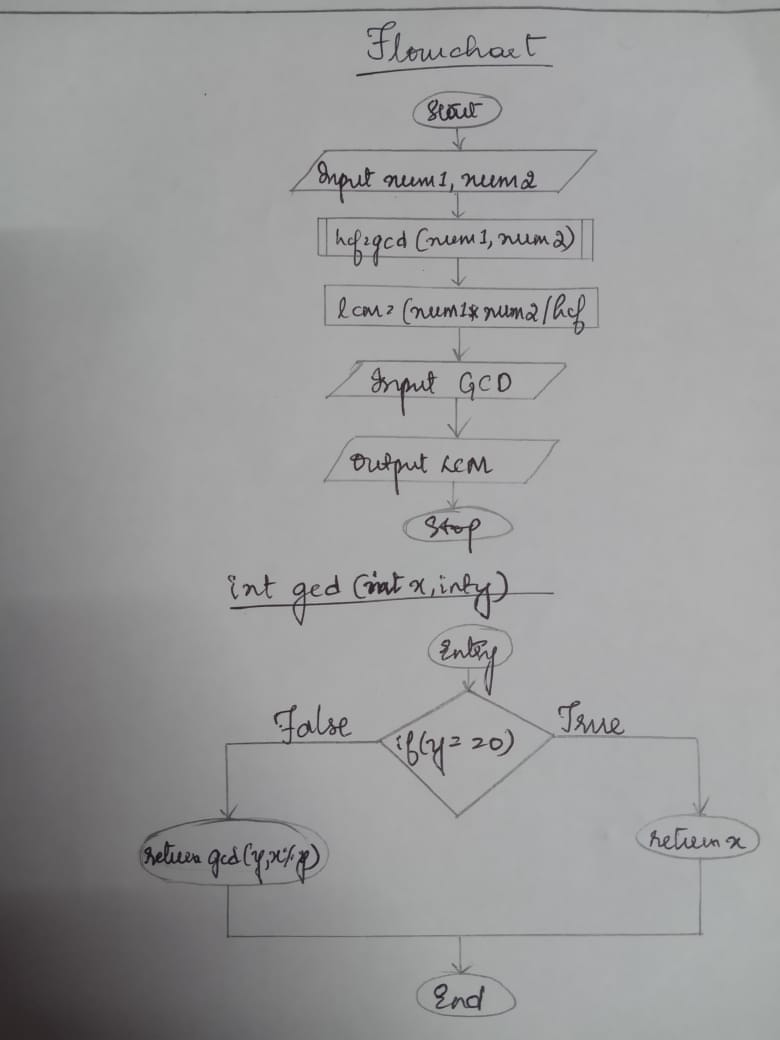 Flowchart
Start
Input num1, num2
hcf=gcd (num1, num2)
lcm= (num1* num2/hcf
Input GCD
Output LCM
Stop
int gcd (int x, int y)
Entry
False
True
if(y==0)
return gcd(y,x%y)
return x
End